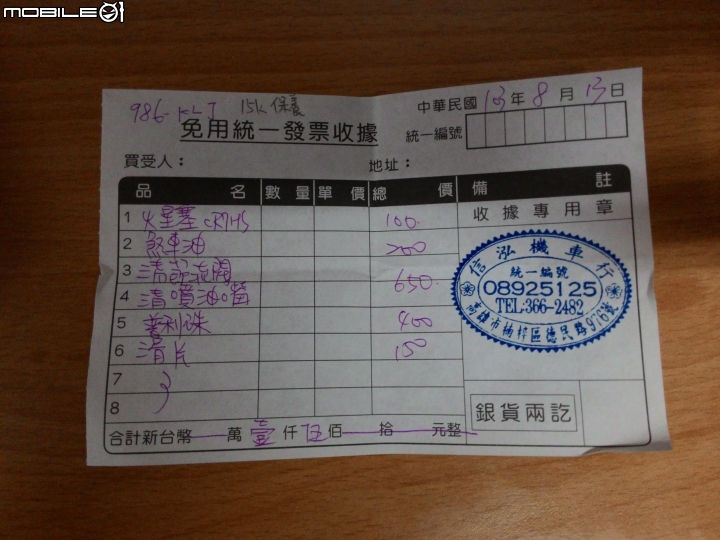 MOBILE01
986-KLJ 15K保養
中華民國 103年 8月 13日
免用統一發票收據
統一編號
買受人：
地址：
品名 數量 單價 總價 備註
收據專用章
1 火星塞 CR7HS 100
2 煞車油 200
3 清節流閥
4 清噴油嘴 650
5 普利珠 400
6 清片 150
7
8
信泓機車行
統一編號
08925125
TEL:366-2482
高雄市楠梓區德民路976號
銀貨兩訖
合計新台幣 萬 壹 仟 伍 佰 拾 元整